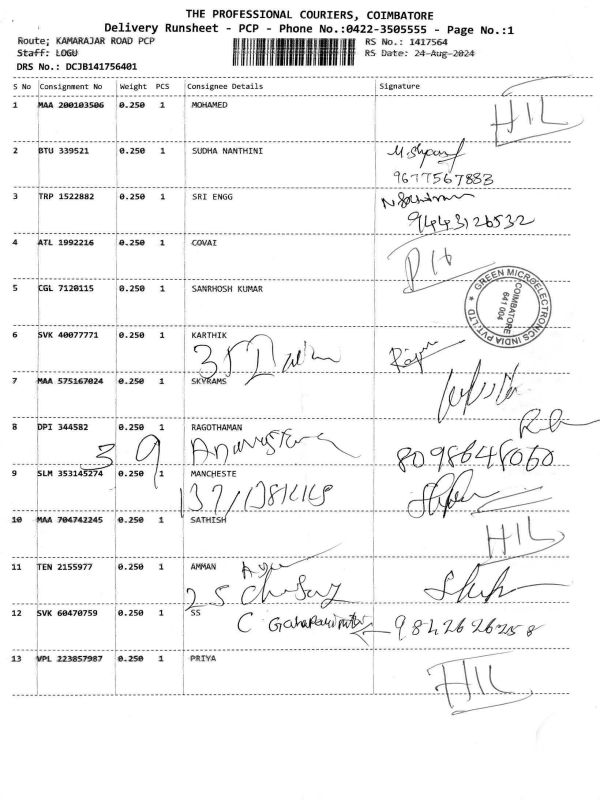 THE PROFESSIONAL COURIERS, COIMBATORE
Delivery Runsheet - PCP - Phone No.:0422-3505555 - Page No.:1
Route; KAMARAJAR ROAD PCP
RS No.: 1417564
Staff: LOGU
RS Date: 24-Aug-2024
DRS No.: DCJB141756401
S No Consignment No Weight PCS Consignee Details Signature
1 MAA 200103506 0.250 1 MOHAMED
HIL
2 BTU 339521 0.250 1 SUDHA NANTHINI
9677567883
3 TRP 1522882 0.250 1 SRI ENGG
9443126532
4 ATL 1992216 0.250 1 COVAI
5 CGL 7120115 0.250 1 SANRHOSH KUMAR
GREEN MICROELECTRONICS INDIA PVT.LTD
COIMBATORE
641 004
6 SVK 40077771 0.250 1 KARTHIK
7 MAA 575167024 0.250 1 SKYRAMS
8 DPI 344582 0.250 1 RAGOTHAMAN
39
8098648060
9 SLM 353145274 0.250 1 MANCHESTE
10 MAA 704742245 0.250 1 SATHISH
HIL
11 TEN 2155977 0.250 1 AMMAN
12 SVK 60470759 0.250 1 SS
9842626258
13 VPL 223857987 0.250 1 PRIYA
HIL